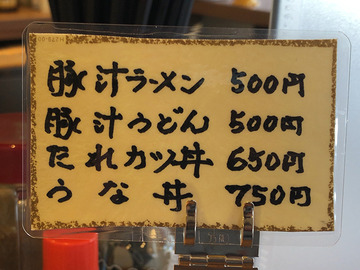 豚汁ラーメン 500円
豚汁うどん 500円
たれカツ丼 650円
うな丼 750円